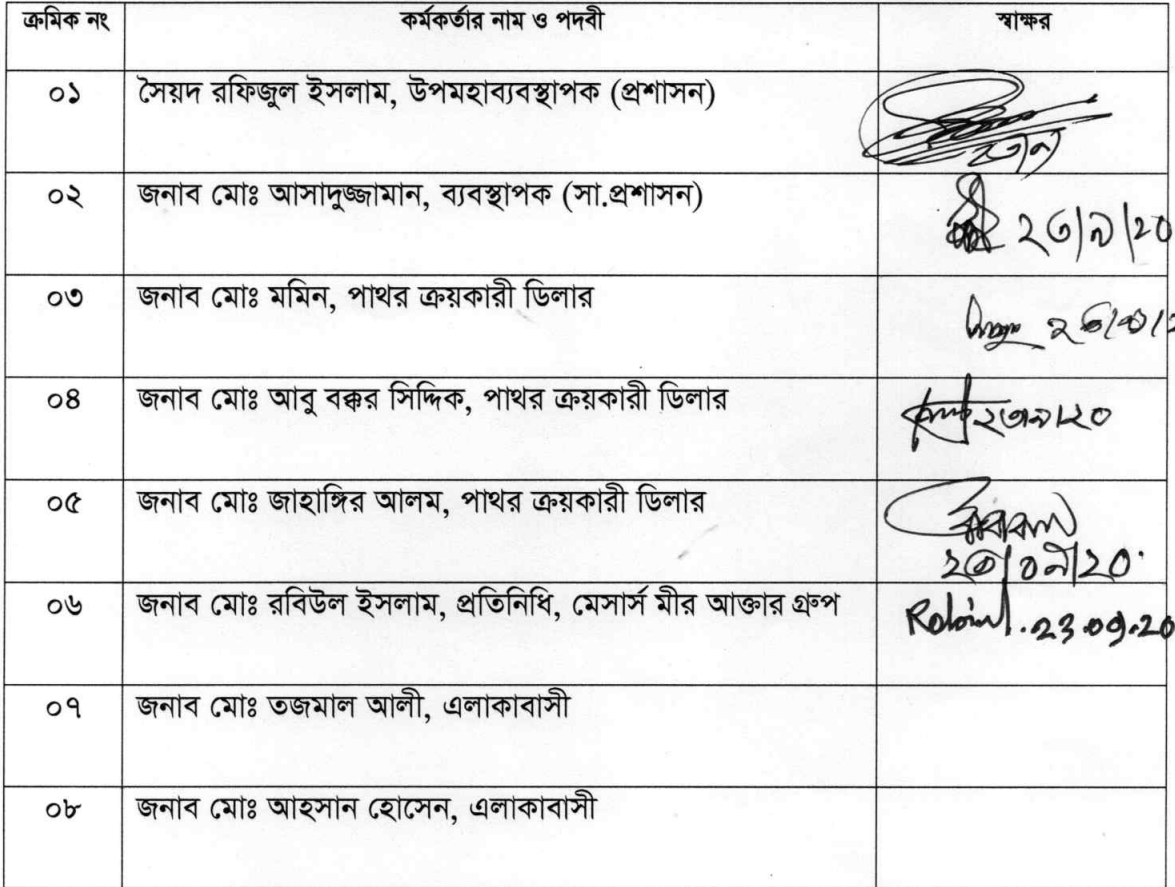 ক্রমিক নং কর্মকর্তার নাম ও পদবী স্বাক্ষর
০১ সৈয়দ রফিজুল ইসলাম, উপমহাব্যবস্থাপক (প্রশাসন)
২৩/৯
০২ জনাব মোঃ আসাদুজ্জামান, ব্যবস্থাপক (সা.প্রশাসন)
২৩/৯/২০
০৩ জনাব মোঃ মমিন, পাথর ক্রয়কারী ডিলার
০৪ জনাব মোঃ আবু বক্কর সিদ্দিক, পাথর ক্রয়কারী ডিলার
২৩/৯/২০
০৫ জনাব মোঃ জাহাঙ্গির আলম, পাথর ক্রয়কারী ডিলার
২৩/০৯/২০
০৬ জনাব মোঃ রবিউল ইসলাম, প্রতিনিধি, মেসার্স মীর আক্তার গ্রুপ
Robiul. 23.09.20
০৭ জনাব মোঃ তজমাল আলী, এলাকাবাসী
০৮ জনাব মোঃ আহসান হোসেন, এলাকাবাসী